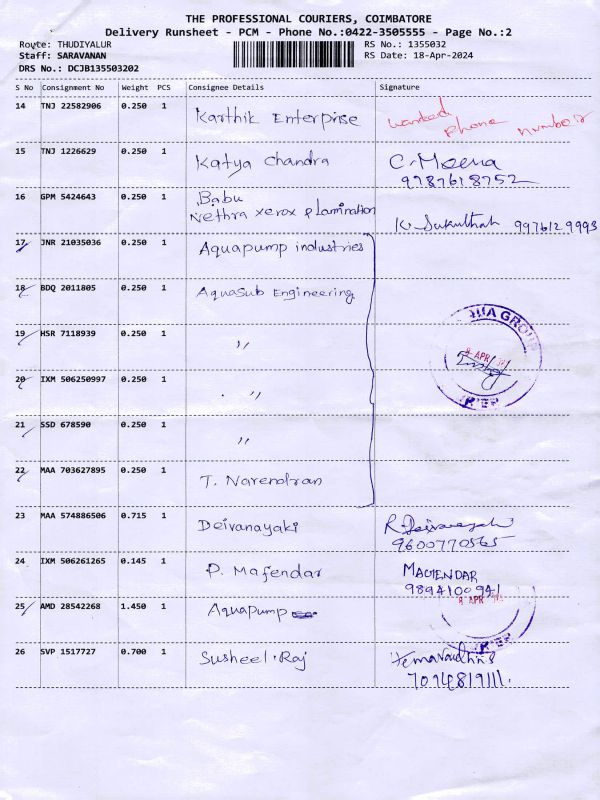 THE PROFESSIONAL COURIERS, COIMBATORE
Delivery Runsheet - PCM - Phone No.:0422-3505555 - Page No.:2
Route: THUDIYALUR RS No.: 1355032
Staff: SARAVANAN RS Date: 18-Apr-2024
DRS No.: DCJB135503202
S No Consignment No Weight PCS Consignee Details Signature
14 TNJ 22582906 0.250 1 Karthik Enterprise wanted phone number
15 TNJ 1226629 0.250 1 Katya Chandra C. Meena
9787618752
16 GPM 5424643 0.250 1 Babu
Nethra xerox & lamination K. 9976129993
17 JNR 21035036 0.250 1 Aquapump industries
18 BDQ 2011805 0.250 1 AquaSub Engineering
AQUA GROUP
19 HSR 7118939 0.250 1 "
APR
20 IXM 506250997 0.250 1 "
21 SSD 678590 0.250 1 "
22 MAA 703627895 0.250 1 T. Narendran
23 MAA 574886506 0.715 1 Deivanayaki
9600770565
24 IXM 506261265 0.145 1 P. Majendar MAGENDAR
9894100941
25 AMD 28542268 1.450 1 Aquapump APR
26 SVP 1517727 0.700 1 Susheel. Raj
7014819111.